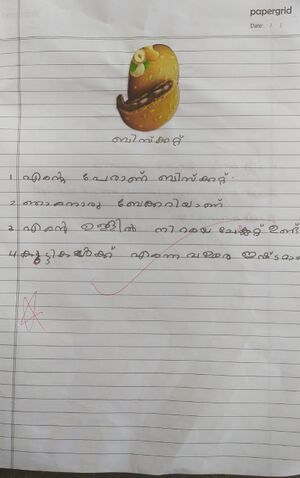 papergrid
Date: / /
ബിസ്ക്കറ്റ്
1 എന്റെ പേരാണ് ബിസ്ക്കറ്റ്.
2 ഞാനൊരു ബേക്കറിയാണ്
3 എന്റെ ഉള്ളിൽ നിറയെ ചോക്ലേറ്റ് ഉണ്ട്
4 കുട്ടികൾക്ക് എന്നെ വളരെ ഇഷ്ടമാ